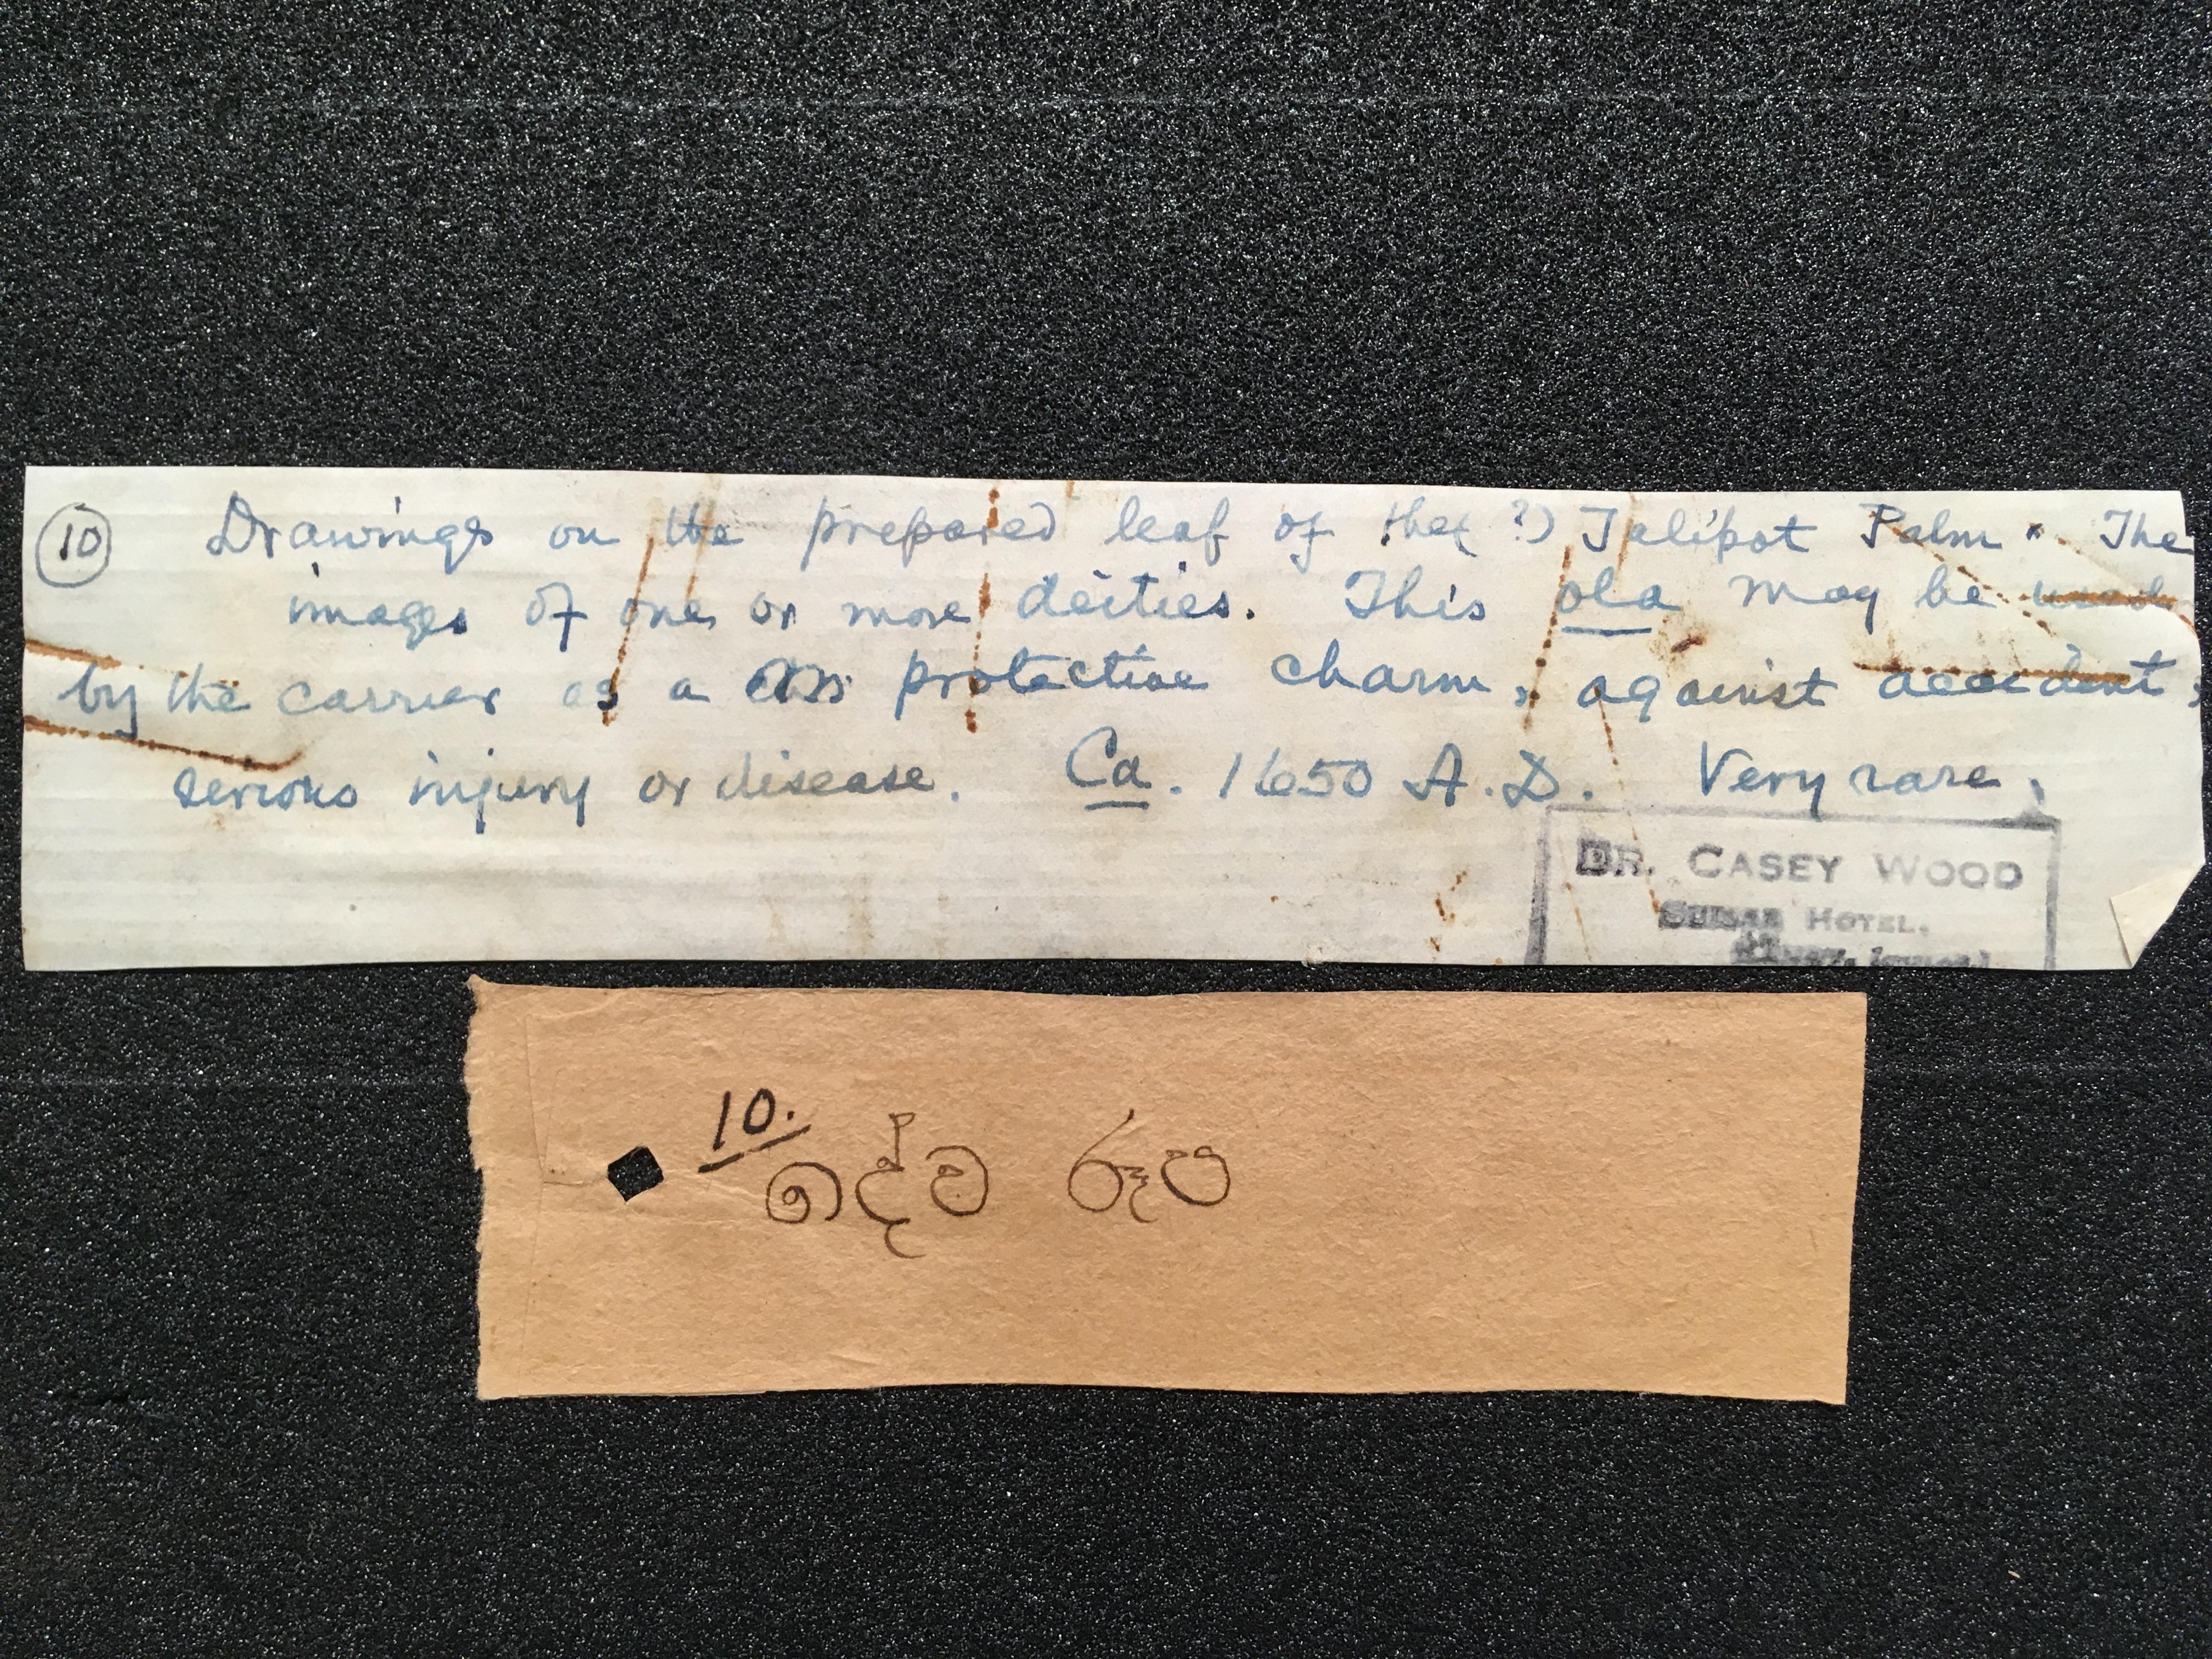 10 Drawings on the prepared leaf of the( ?) Talipot Palm. The
images of one or more deities. This ola may be used
by the carrier as a protective charm, against accident,
serious injury or disease. Ca. 1650 A.D. Very rare.
DR. CASEY WOOD
HOTEL,
10.
දේව රූප